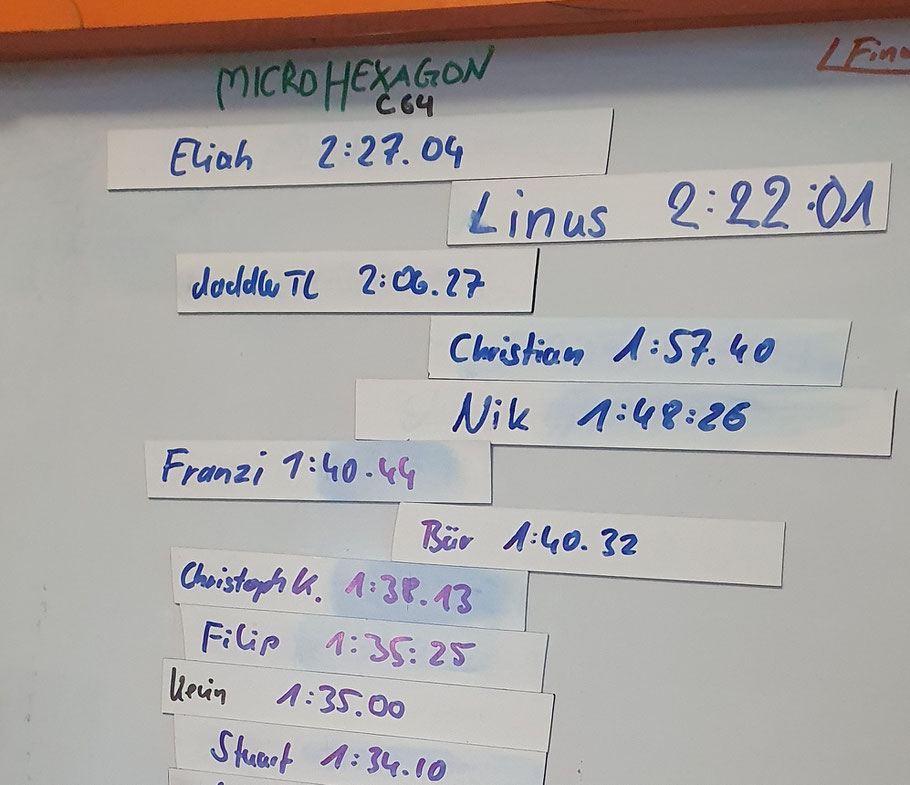 MICRO HEXAGON
C64
Eliah 2:27.04
Linus 2:22:01
doddleTL 2:06.27
Christian 1:57.40
Nik 1:48:26
Franzi 1:40.44
Bär 1:40.32
Christoph K. 1:38.13
Filip 1:35:25
Kevin 1:35.00
Stuart 1:34.10